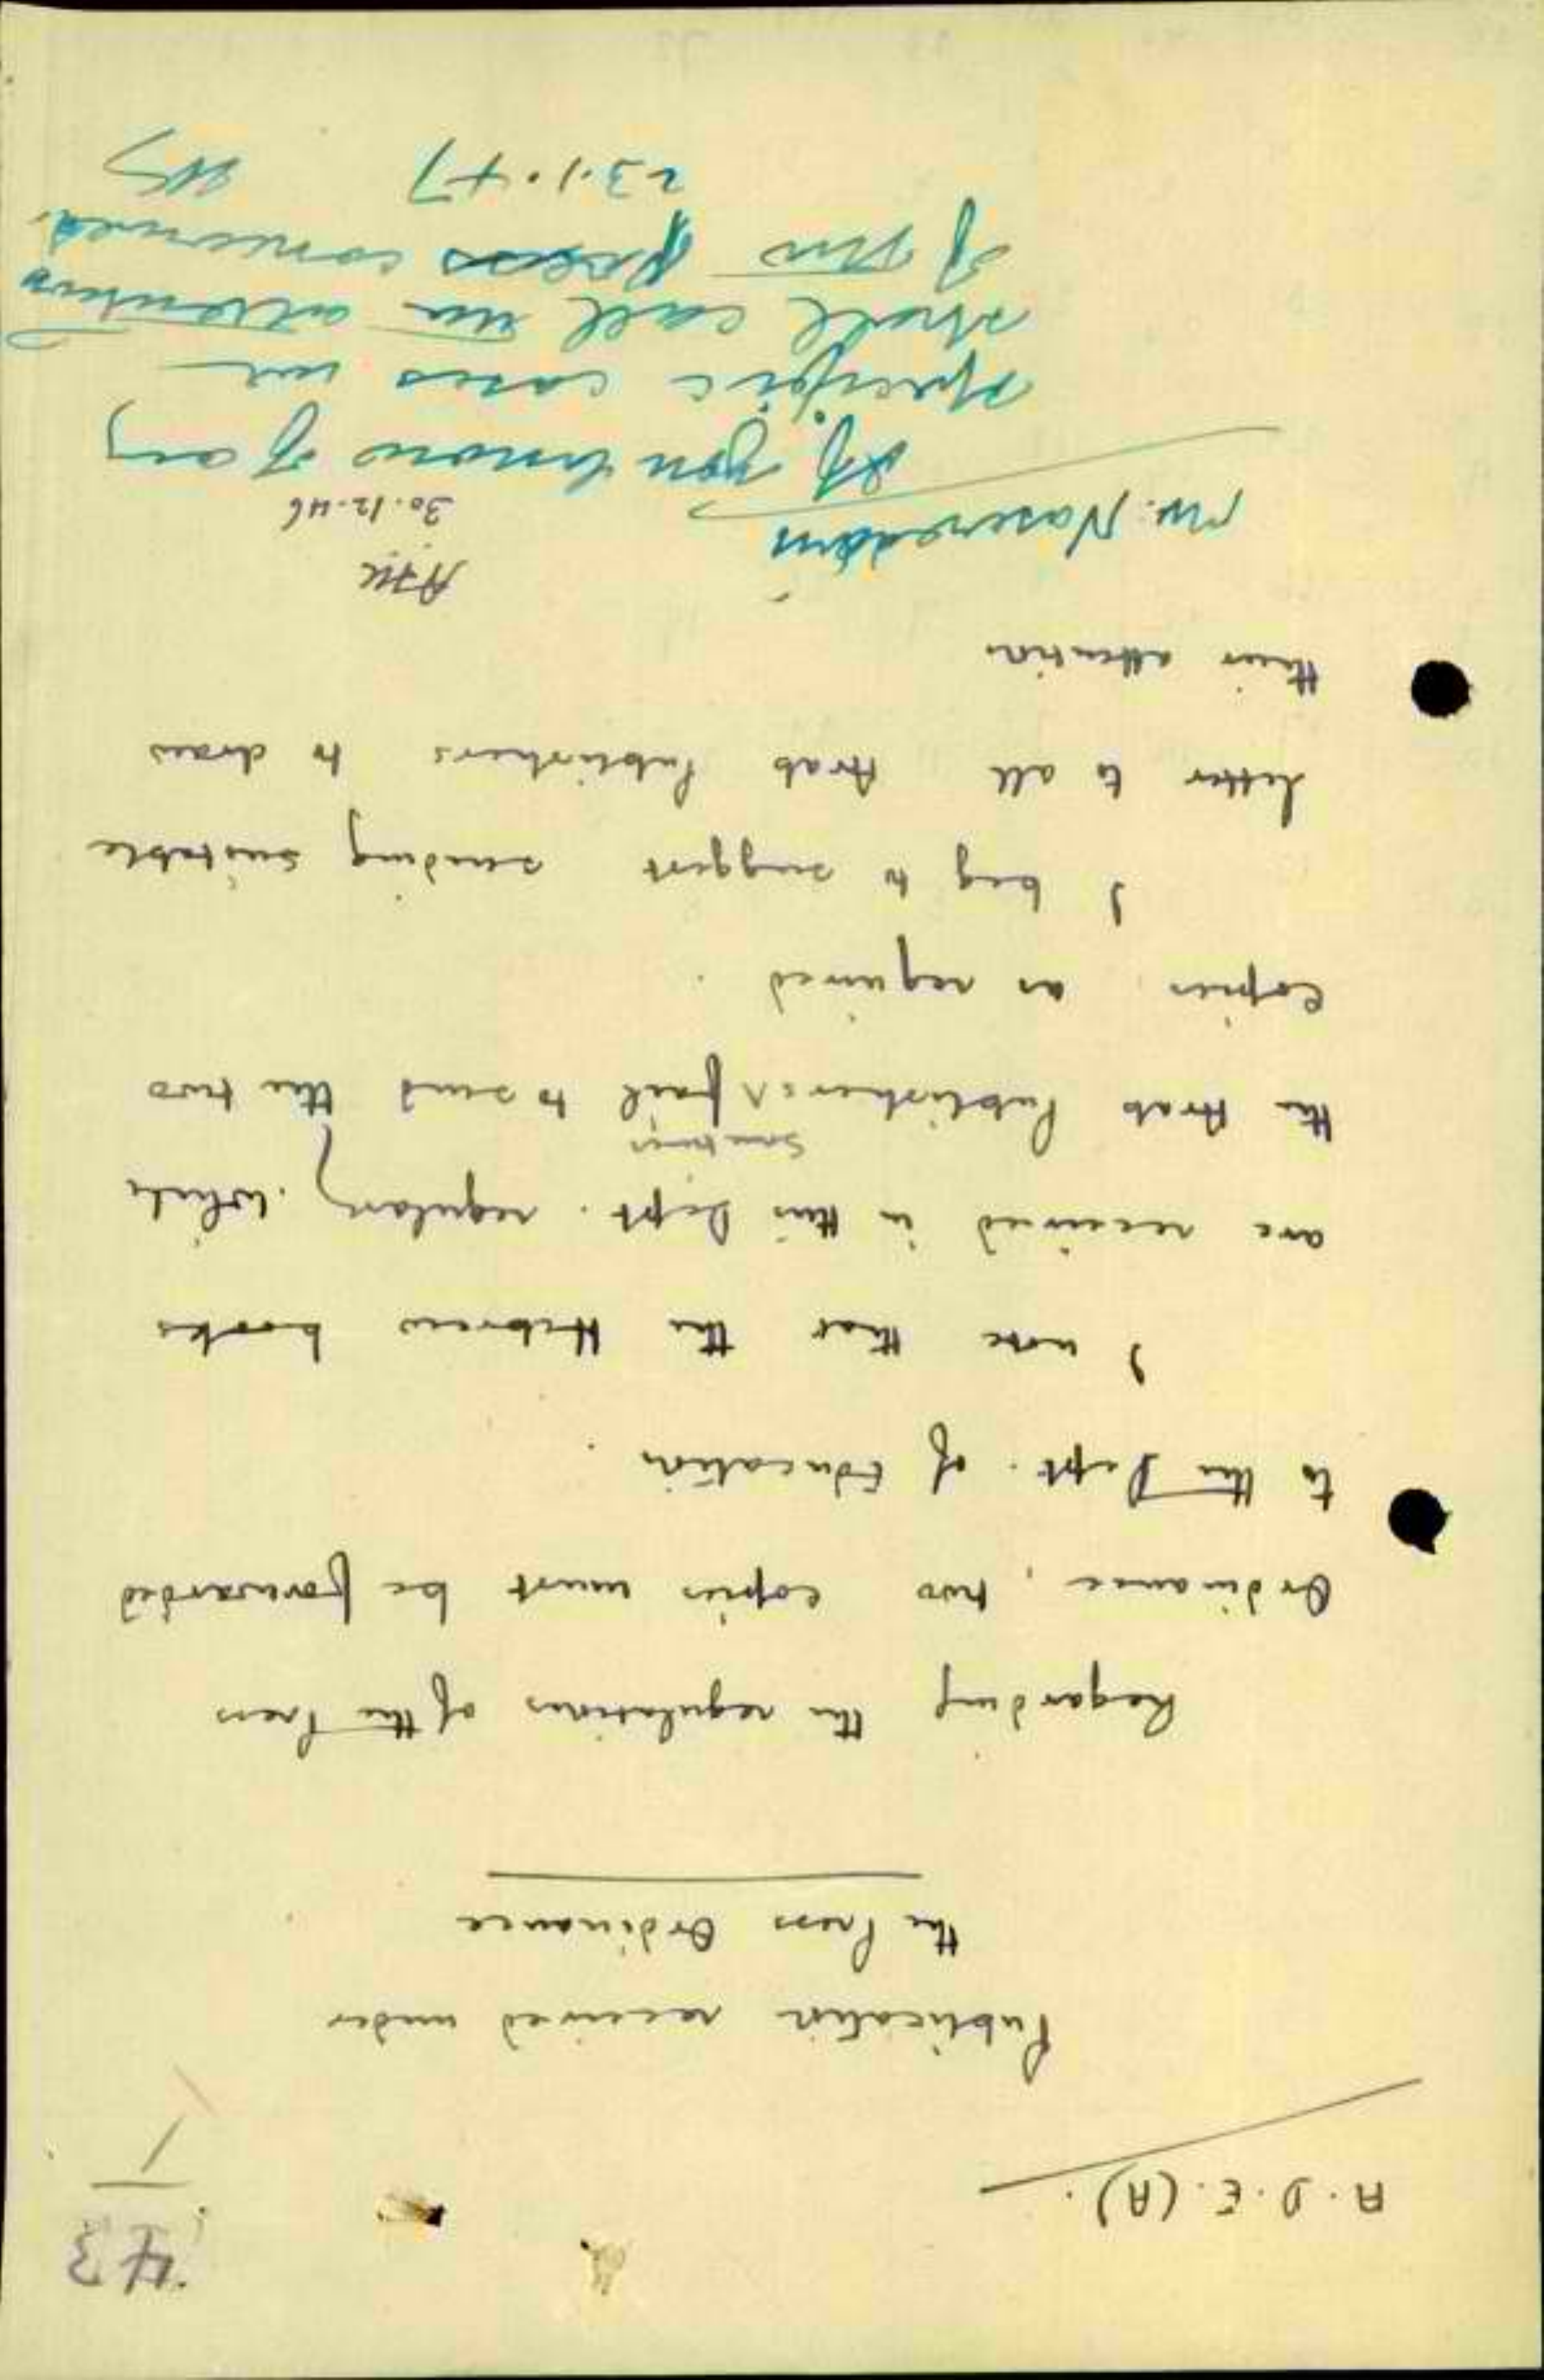 43
1
A.D.E.(A).
Publication received under
the Press Ordinance
Regarding the regulations of the Press
Ordinance, two copies must be forwarded
to the Dept. of Education.
I note that the Hebrew books
are received in this Dept. regulary. While
sometimes
the Arab Publishers fail to send the two
copies as required.
I beg to suggest sending suitable
letter to all Arab Publishers to draw
their attention
30.12.46
Mr.
If you know of any
specific cases we
shall call the attention
of the press concerned.
23.1.47